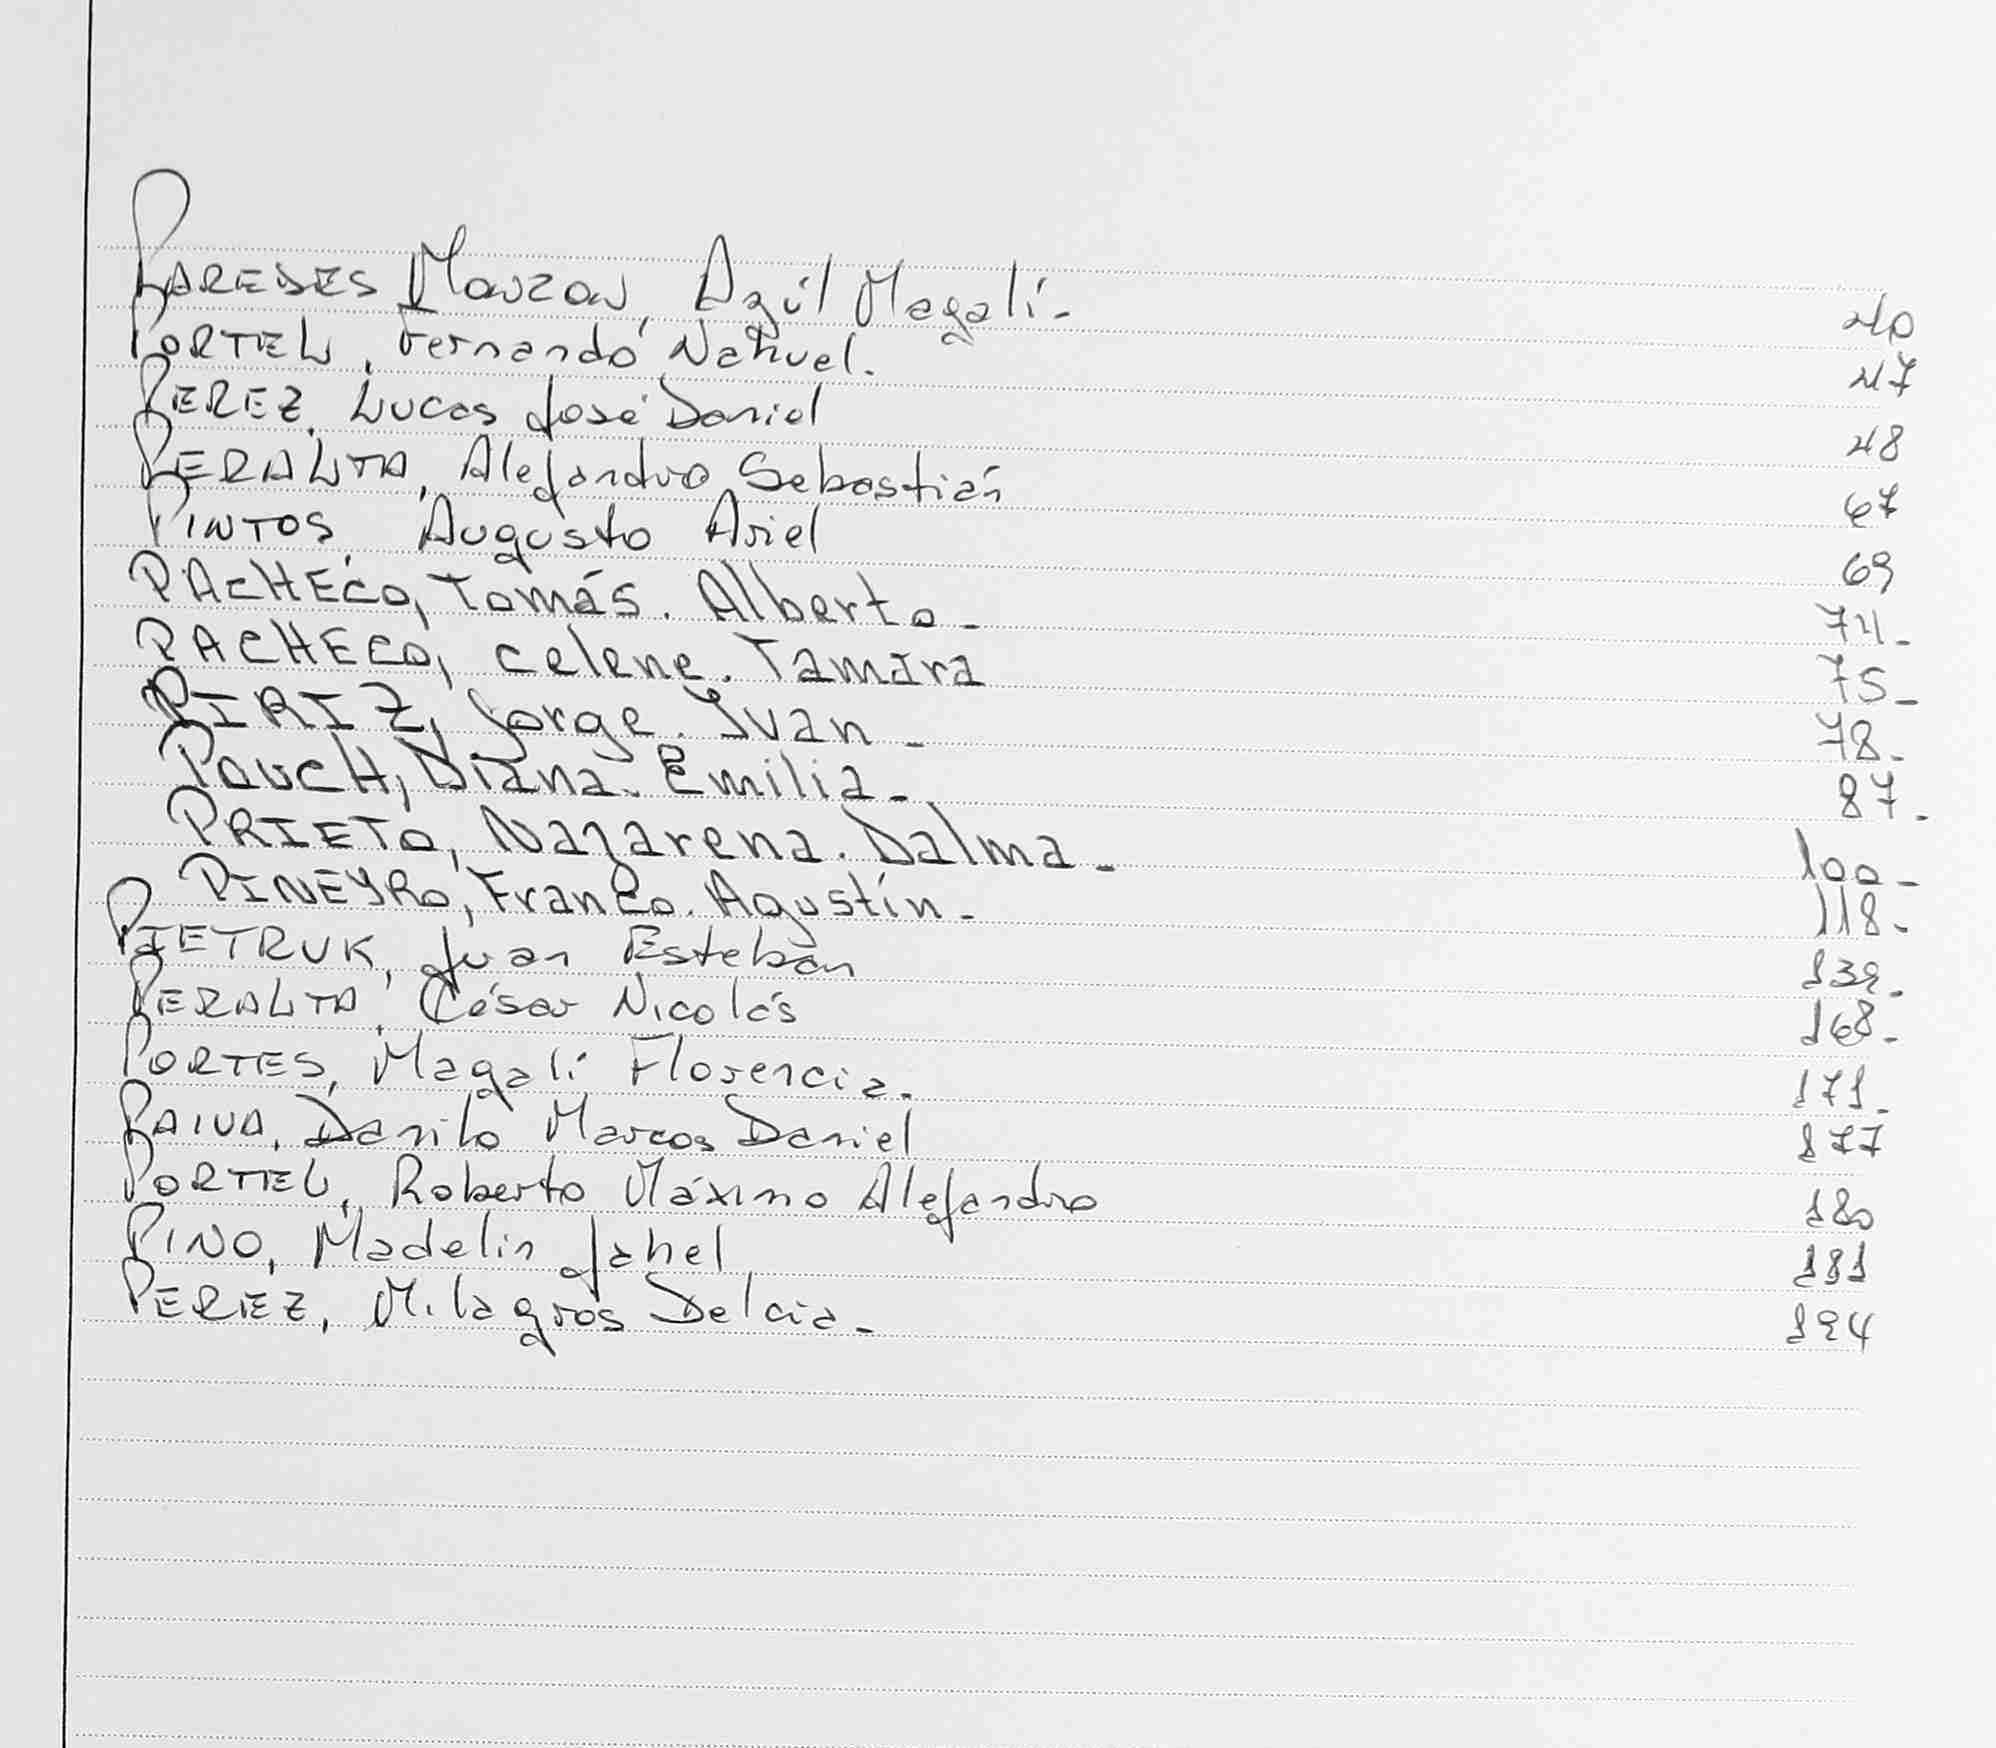 PAREDES Monzon, Azúl Magalí- 40
PORTEL, Fernando Nahuel. 47
PEREZ, Lucas José Daniel 48
PERALTA, Alejandro Sebastián 67
PINTOS, Augusto Ariel 69
PACHECO, Tomás. Alberto- 74-
PACHECO, Celene. Tamara 75-
PIRIZ, Jorge. Ivan- 78-
POUCH, Diana. Emilia- 87-
PRIETO, Nazarena. Dalma- 100-
PINEYRO, Franco. Agustín- 118-
PIETRUK, Juan Esteban 139-
PERALTA, César Nicolás 168-
PORTES, Magalí Florencia. 171-
PAIVA, Danilo Marcos Daniel 177
PORTEL, Roberto Máximo Alejandro 180
PINO, Madelin Jahel 181
PEREZ, Milagros Delcia- 194